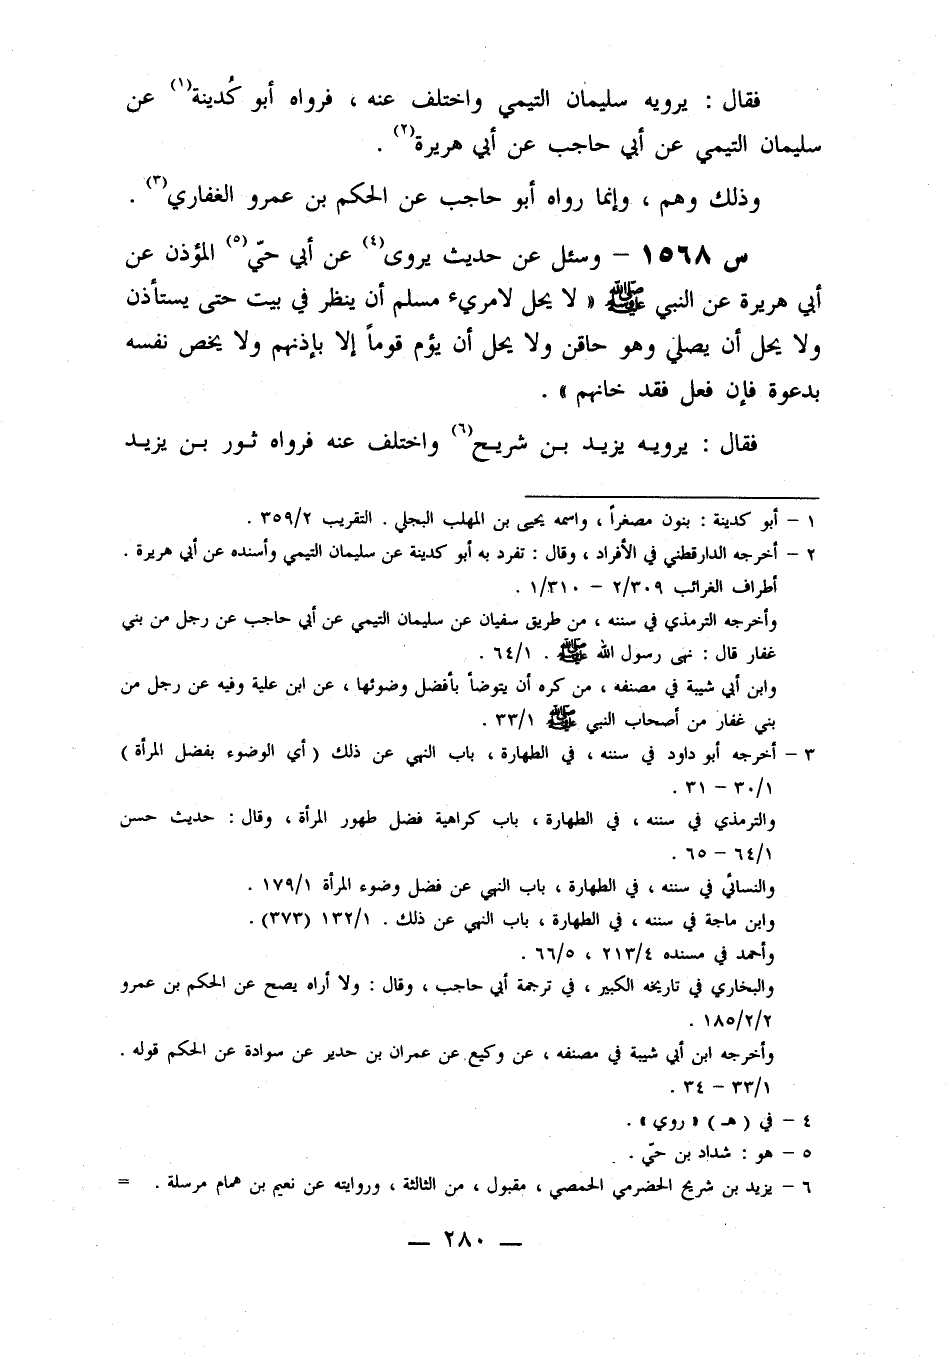 فقال : يرويه سليمان التيمي واختلف عنه ، فرواه أبو كُدينة(١) عن
سليمان التيمي عن أبي حاجب عن أبي هريرة(٢) .
وذلك وهم ، وإنما رواه أبو حاجب عن الحكم بن عمرو الغفاري(٣) .
س ١٥٦٨ – وسئل عن حديث يروى(٤) عن أبي حيّ(٥) المؤذن عن
أبي هريرة عن النبي ﷺ « لا يحل لامريء مسلم أن ينظر في بيت حتى يستأذن
ولا يحل أن يصلي وهو حاقن ولا يحل أن يؤم قوماً إلا بإذنهم ولا يخص نفسه
بدعوة فإن فعل فقد خانهم » .
فقال : يرويه يزيد بن شريح(٦) واختلف عنه فرواه ثور بن يزيد
١ – أبو كدينة : بنون مصغراً ، واسمه يحيى بن المهلب البجلي . التقريب ٣٥٩/٢ .
٢ – أخرجه الدارقطني في الأفراد ، وقال : تفرد به أبو كدينة عن سليمان التيمي وأسنده عن أبي هريرة .
أطراف الغرائب ٢/٣٠٩ – ١/٣١٠ .
وأخرجه الترمذي في سننه ، من طريق سفيان عن سليمان التيمي عن أبي حاجب عن رجل من بني
غفار قال : نهى رسول الله ﷺ . ٦٤/١ .
وابن أبي شيبة في مصنفه ، من كره أن يتوضأ بأفضل وضوئها ، عن ابن علية وفيه عن رجل من
بني غفار من أصحاب النبي ﷺ ٣٣/١ .
٣ – أخرجه أبو داود في سننه ، في الطهارة ، باب النهي عن ذلك ( أي الوضوء بفضل المرأة )
٣٠/١ – ٣١ .
والترمذي في سننه ، في الطهارة ، باب كراهية فضل طهور المرأة ، وقال : حديث حسن
٦٤/١ – ٦٥ .
والنسائي في سننه ، في الطهارة ، باب النهي عن فضل وضوء المرأة ١٧٩/١ .
وابن ماجة في سننه ، في الطهارة ، باب النهي عن ذلك . ١٣٢/١ (٣٧٣) .
وأحمد في مسنده ٢١٣/٤ ، ٦٦/٥ .
والبخاري في تاريخه الكبير ، في ترجمة أبي حاجب ، وقال : ولا أراه يصح عن الحكم بن عمرو
١٨٥/٢/٢ .
وأخرجه ابن أبي شيبة في مصنفه ، عن وكيع عن عمران بن حدير عن سوادة عن الحكم قوله .
٣٣/١ – ٣٤ .
٤ – في ( هـ ) « روي » .
٥ – هو : شداد بن حيّ .
٦ – يزيد بن شريح الحضرمي الحمصي ، مقبول ، من الثالثة ، وروايته عن نعيم بن همام مرسلة . =
— ٢٨٠ —